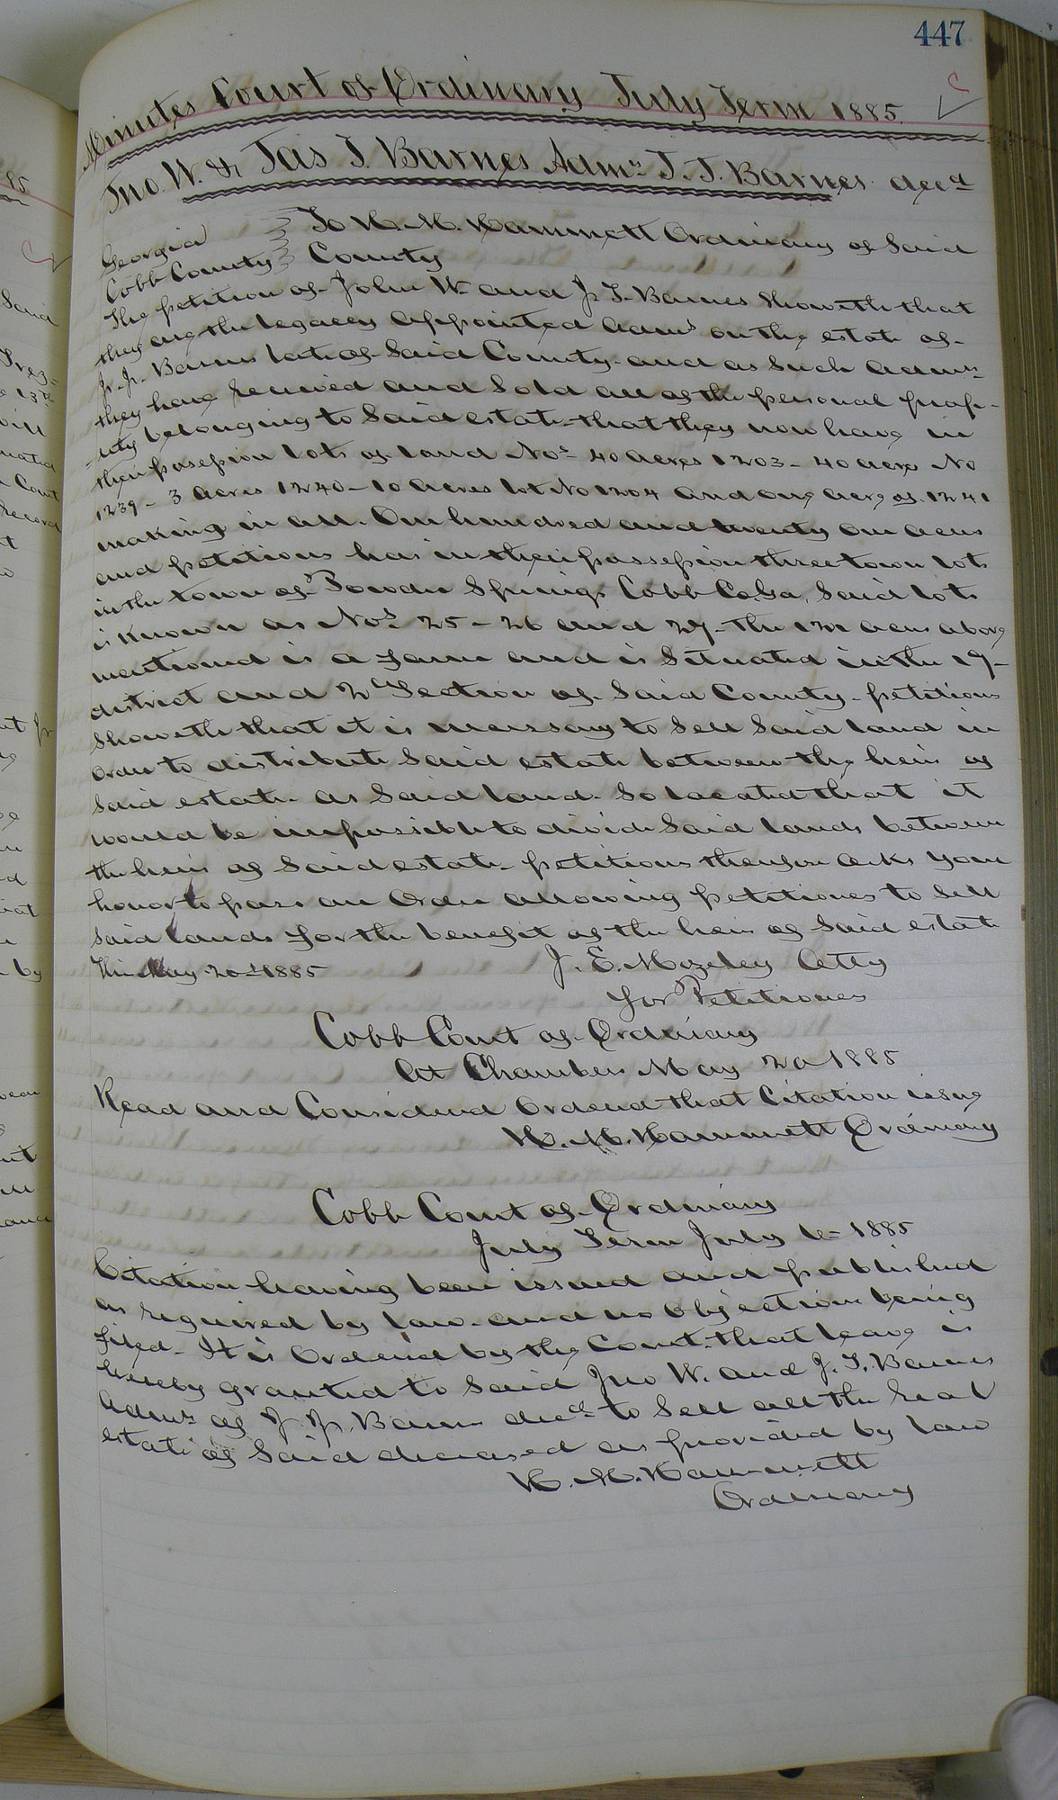 447
Minutes Court of Ordinary July Term 1885.
Jno. W. & Jas T. Barnes Admrs J. J. Barnes decd
Georgia To H. M. Hammett Ordinary of Said
Cobb County County
The petition of John W. and J. T. Barnes Showeth that
they are the legaces appointed Adms on the estate of
J. J. Barnes late of Said County and as Such Admrs
they have received and Sold all of the personal prop-
-erty belonging to Said estate that they now have in
their possession lots of land Nos 40 acres 1203 - 40 acres No
1239 - 3 acres 1240 - 10 acres lot No 1204 and one acre of 1241
making in all. One hundred and twenty one acres
and petitions has in their possession three town lots
in the town of Powder Springs Cobb Co Ga, Said lots
is known as Nos 25 - 26 and 27 - the 121 acres above
mentioned is a farm and is Situated in the 19-
district and 2d Section of Said County - petitions
Showeth that it is necessary to Sell Said land in
order to distribute Said estate between the heirs of
Said estate as Said land So located that it
would be impossible to divide Said lands between
the heirs of Said estate petitions therefore asks your
honor to pass an Order allowing petitiones to Sell
Said lands for the benefit of the heirs of Said estate
This May 20th 1885 J. E. Mozeley Atty
for Petitiones
Cobb Court of Ordinary
At Chambers May 20 1885
Read and Considered Ordered that Citation issue
H. M. Hammett Ordinary
Cobb Court of Ordinary
July Term July 6 - 1885
Citation having been issued and published
as required by law and no objection being
filed - It is Ordered by the Court that leave is
hereby granted to Said Jno W. and J. T. Barnes
Admrs of J. J. Barnes decd to Sell all the real
estate of Said deceased as provided by law
H. M. Hammett
Ordinary